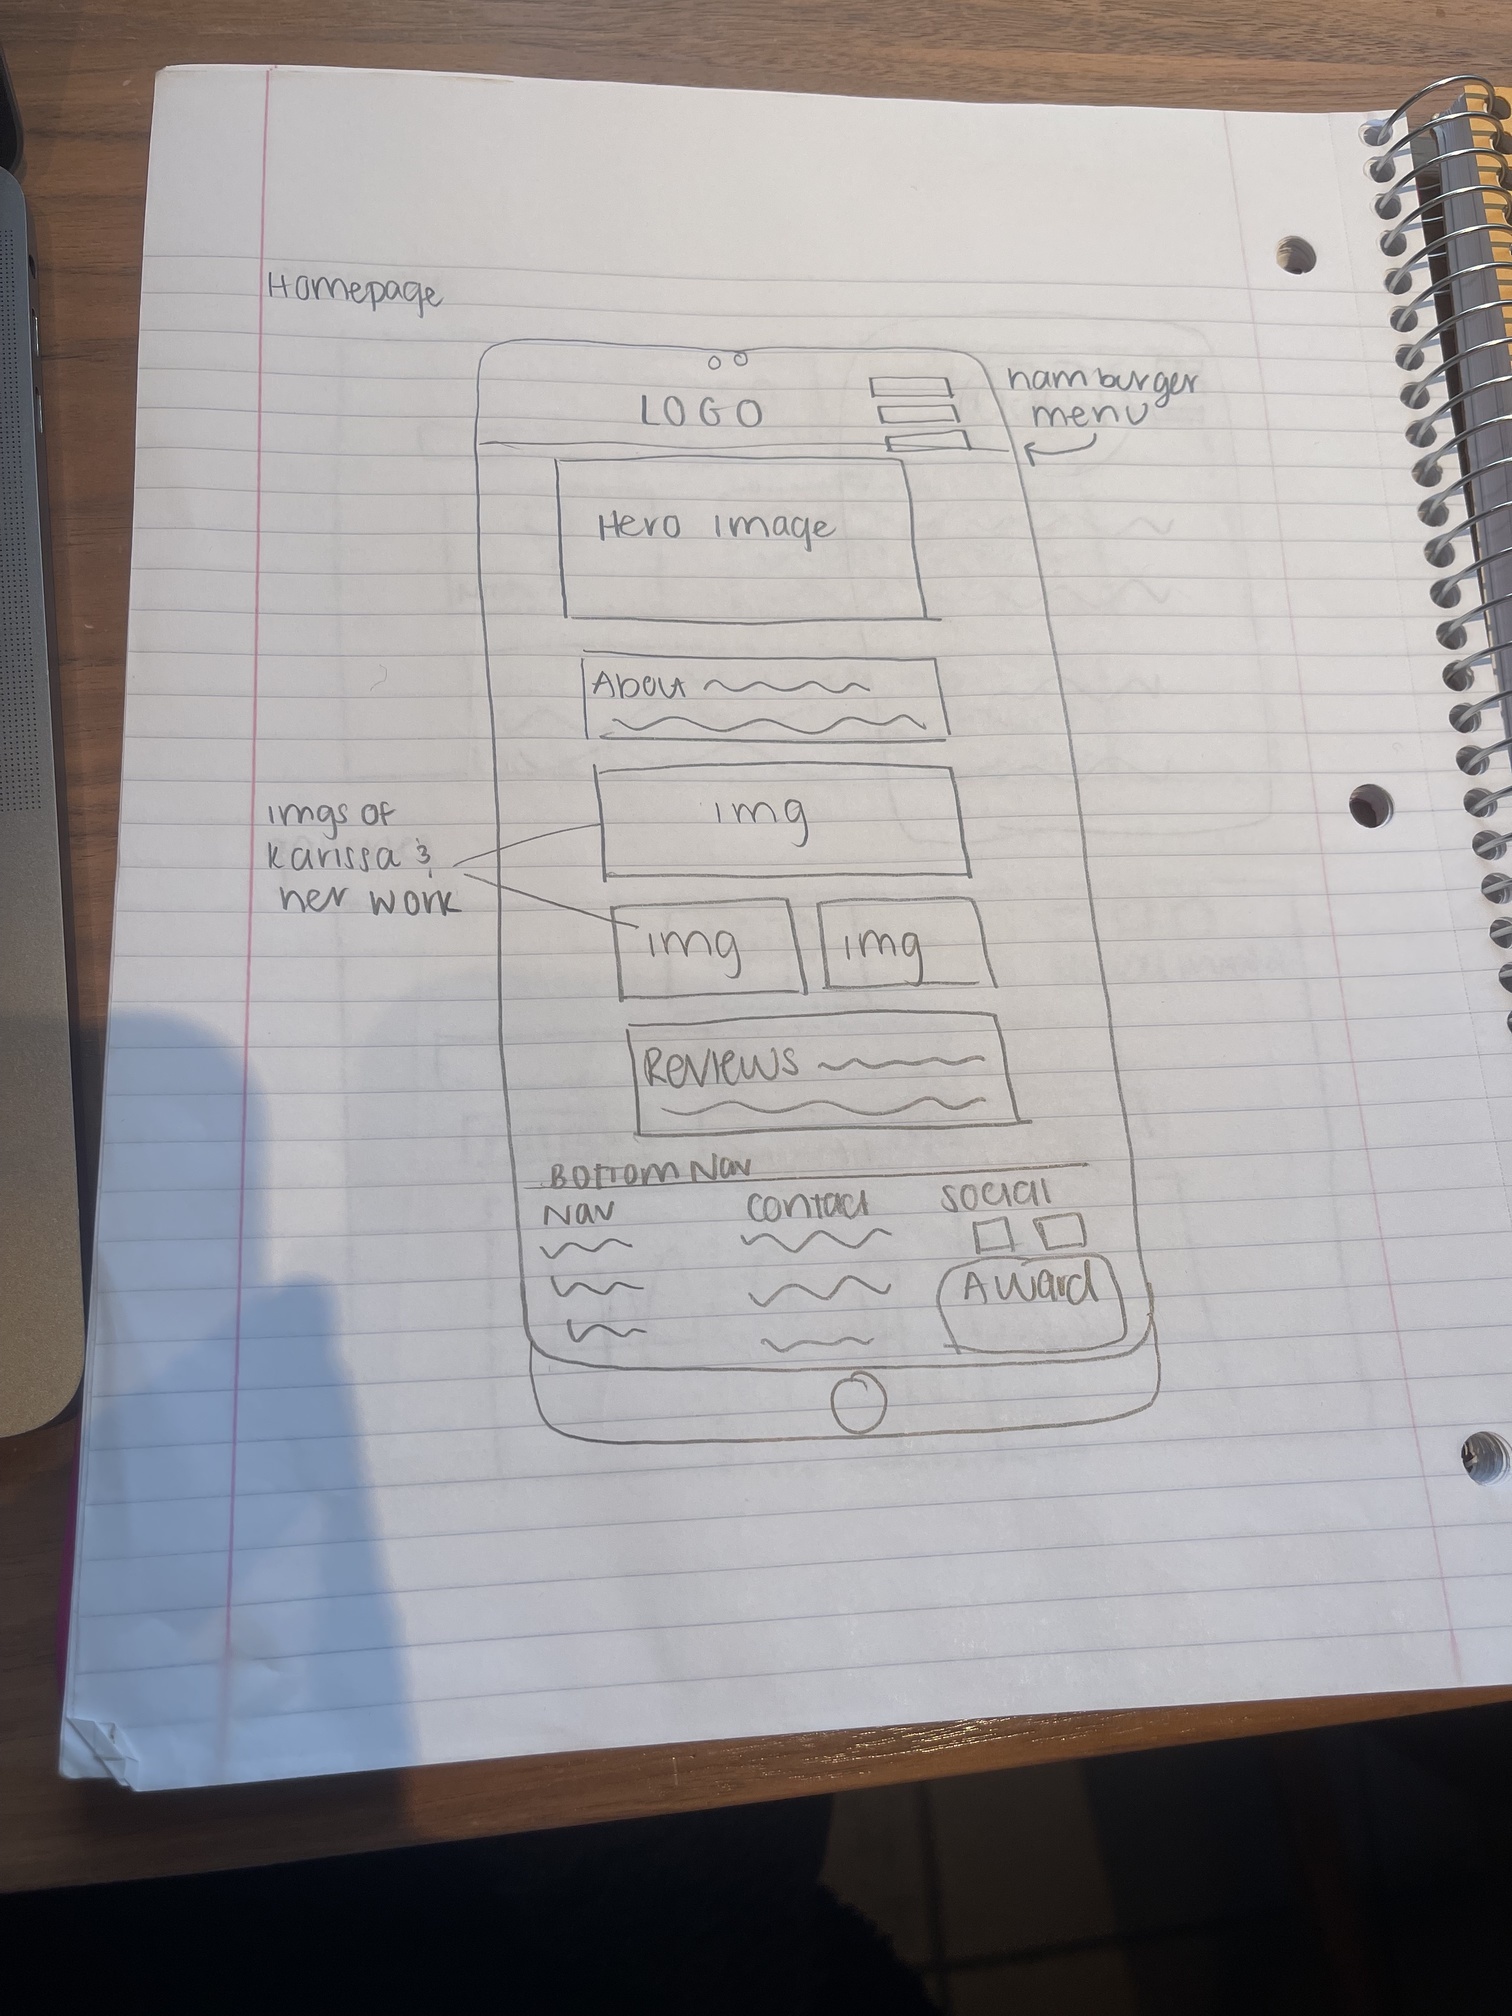 Homepage
hamburger
menu
LOGO
Hero image
About
imgs of
Karissa &
her work
img
img img
Reviews
Bottom Nav
Nav Contact Social
Award